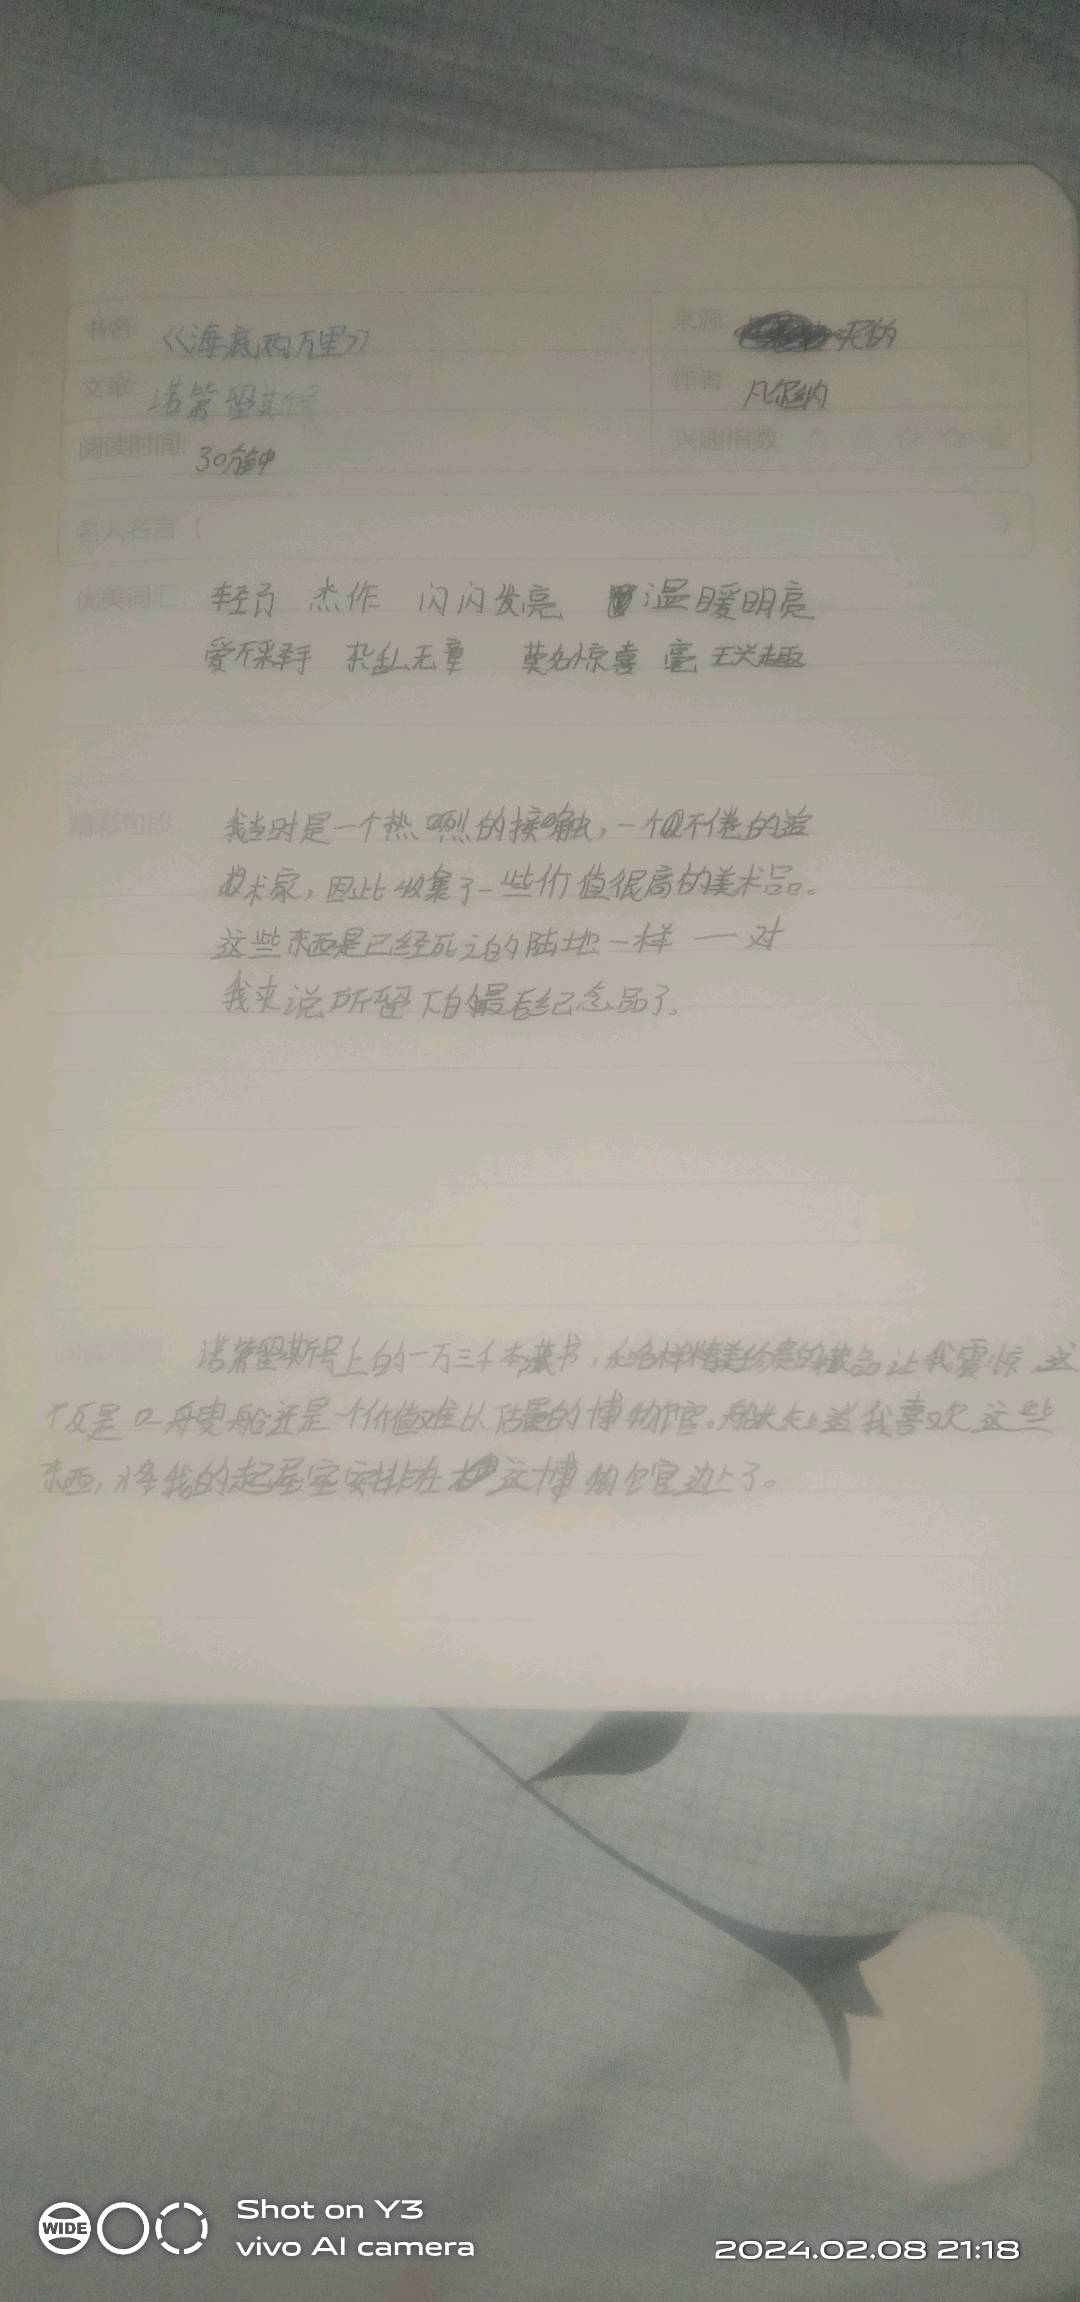 书名 《海底两万里》 来源 买的
文章 诺第留斯号 作者 凡尔纳
阅读时间 30分钟 兴趣指数
名人名言 ( )
优美词汇 杰作 闪闪发亮 温暖明亮
爱不释手 杂乱无章 莫名惊喜 毫无兴趣
精彩句段 我当时是一个热烈的接触，一个不倦的追
求家，因此收集了一些价值很高的美术品。
这些东西是已经死亡的陆地一样 — 对
我来说所留下的最后纪念品了。
诺第留斯号上的一万三千本藏书，各样精美的藏品让我震惊 这
不仅是一艘船还是一个价值难以估量的博物馆。知道我喜欢这些
东西，将我的起居室安排在这博物馆边上了。
WIDE
Shot on Y3
vivo AI camera
2024.02.08 21:18